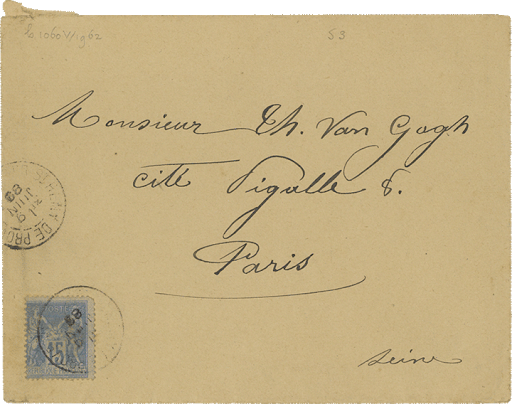 b 1060 V/1962
53
Monsieur Th. Van Gogh
cité Pigalle 8.
Paris
Seine
DE PRO
JUIN 89
POSTE
15